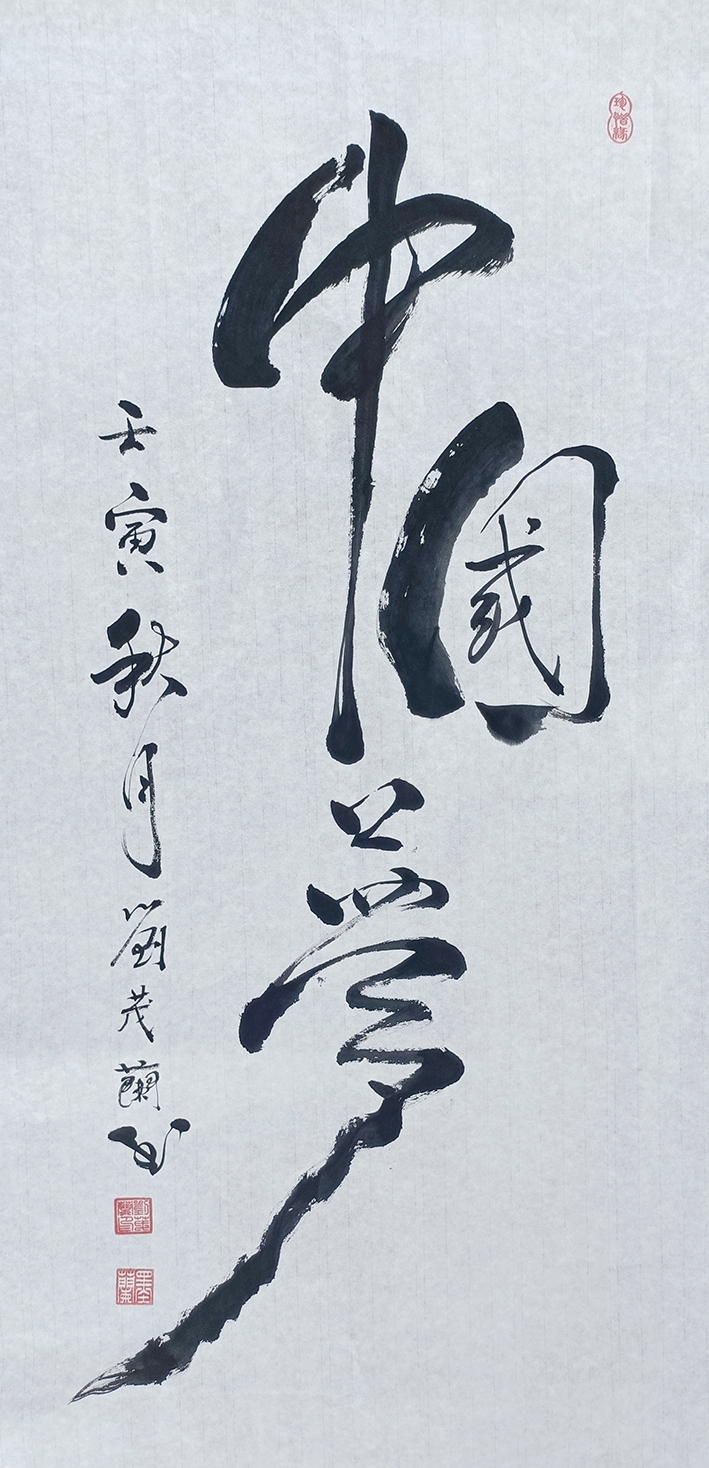 中國夢
壬寅秋月劉茂蘭书